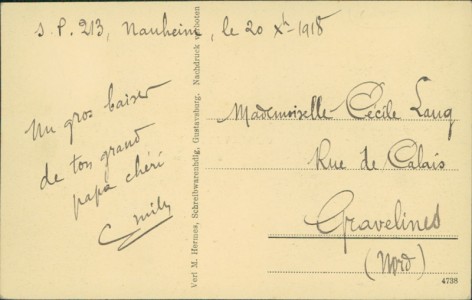 S. P. 213, Nauheim, le 20 Xbre 1918
Un gros baiser
de ton grand
papa chéri
Emily
Verl M. Hermes, Schreibwarenhdlg, Gustavsburg. Nachdruck verboten
Mademoiselle Cécile Lauq
Rue de Calais
Gravelines
(Nord)
4738